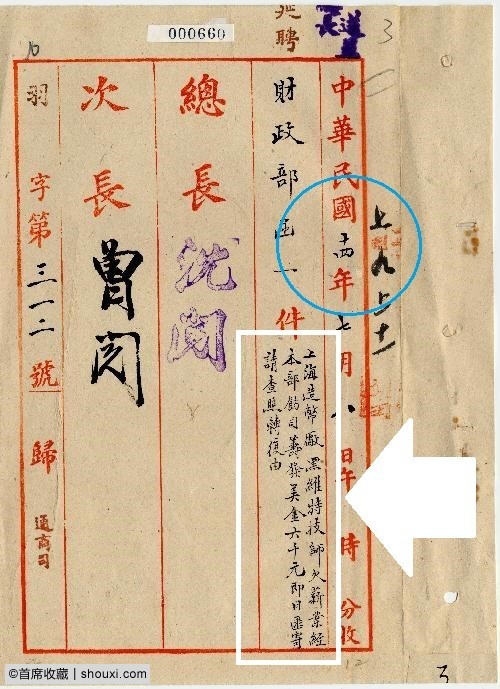 000660
延聘
3
中華民國十四年七月八日午 時 分收
財政部函一件
上海造幣廠黑維特技師欠薪業經
本部飭司籌發美金六千元即日匯寄
請查照轉復由
總長 沈閱
次長 曾閱
羽字第三一二號歸 通商司
12
©首席收藏 | shouxi.com